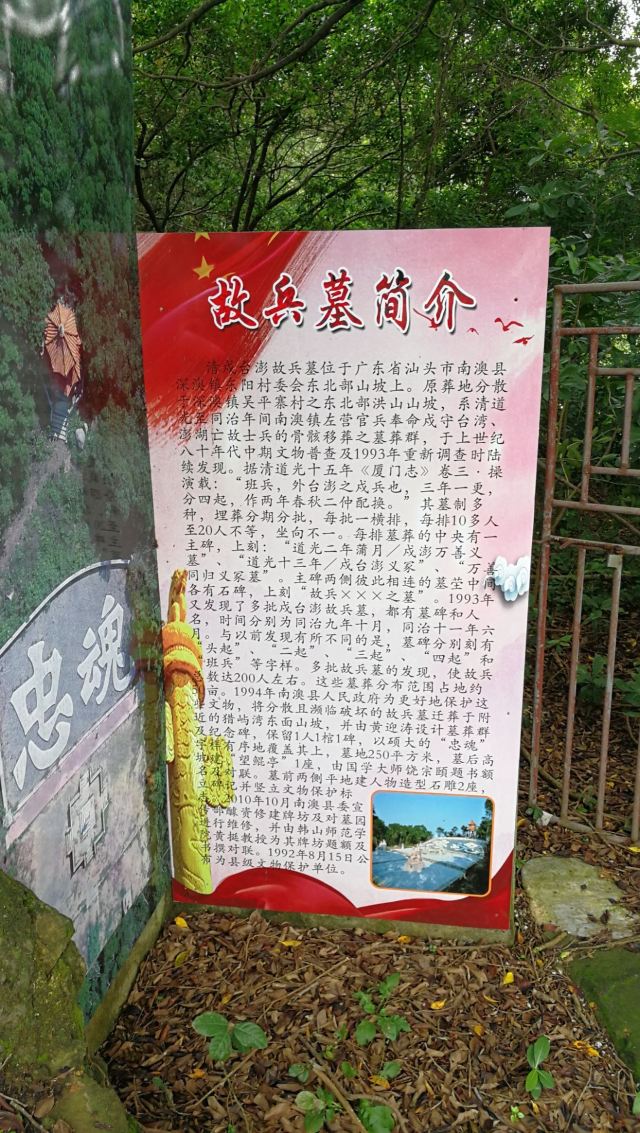 忠魂
故兵墓简介
清戍台澎故兵墓位于广东省汕头市南澳县
深澳镇东阳村委会东北部山坡上。原葬地分散
于深澳镇吴平寨村之东北部洪山山坡，系清道
光至同治年间南澳镇左营官兵奉命戍守台湾、
澎湖亡故士兵的骨骸移葬之墓葬群，于上世纪
八十年代中期文物普查及1993年重新调查时陆
续发现。据清道光十五年《厦门志》卷三·操
演载：“班兵，外台澎之戍兵也，三年一更，
分四起，作两年春秋二仲配换。”其墓制多
种，埋葬分期分批，每批一横排，每排10多人
至20人不等，坐向不一。每排墓葬的中央有一
主碑，上刻：“道光二年蒲月／戍澎万善义
墓”、“道光十三年／戍台澎义冢”、“万善
同归义冢墓”。主碑两侧彼此相连的墓茔中间
各有石碑，上刻“故兵×××之墓”。1993年
又发现了多批戍台澎故兵墓，都有墓碑和人
名，时间分别为同治九年十月，同治十一年六
月。与以前发现有所不同的是，墓碑分别刻有
“头起”、“二起”、“三起”、“四起”和
“班兵”等字样。多批故兵墓的发现，使故兵
总数达200人左右。这些墓葬分布范围占地约
亩。1994年南澳县人民政府为更好地保护这
些文物，将分散且濒临破坏的故兵墓迁葬于附
近的猎屿湾东面山坡，并由黄迎涛设计墓葬群
及纪念碑，保留1人1棺1碑，以硕大的“忠魂”
字样有序地覆盖其上，墓地250平方米，墓后高
坡建“望鲲亭”1座，由国学大师饶宗颐题书额
名及对联。墓前两侧平地建人物造型石雕2座，
立碑记并竖立文物保护标
2010年10月南澳县委宣
部醵资修建牌坊及对墓园
进行维修，并由韩山师范学
院黄挺教授为其牌坊题额及
书撰对联。1992年8月15日公
布为县级文物保护单位。